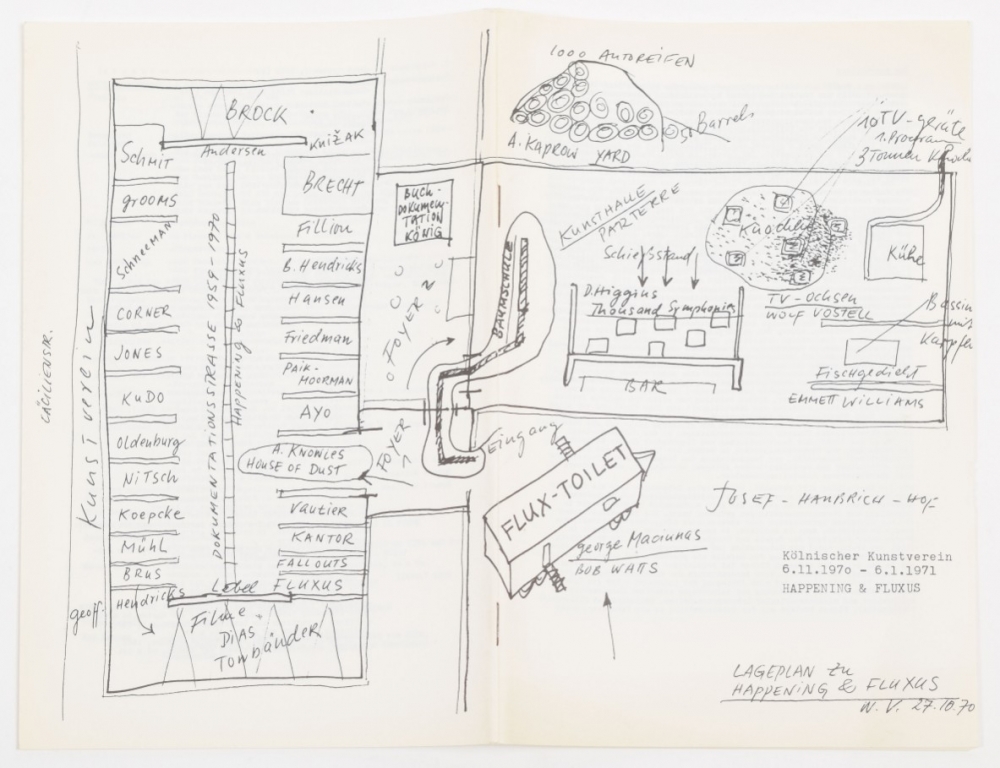 CÄCILIENSTR.
Kunstverein
BROCK
Andersen
KNIŽAK
Schmit
GROOMS
Schneeman
CORNER
JONES
KuDO
Oldenburg
NiTsch
Koepcke
Mühl
BRUS
geoff.
Hendricks
DOKUMENTATIONSSTRASSE 1959-1970
HAPPENING & FLUXUS
BRECHT
Fillion
B. Hendricks
Hansen
Friedman
PAIK-
MOORMAN
AYO
A. KNOWLES
HOUSE OF DUST
Vautier
KANTOR
FALLOUTS
FLUXUS
Lebel
Filme
DIAS
TONbänder
BUCH-
DOKUMEN-
TATION
KÖNIG
FOYER 2
FOYER 1
BAUMSCHULE
Eingang
1000 AUTOREIFEN
50 Barrels
A. KAPROW YARD
KUNSTHALLE
PARTERRE
Schießstand
D. Higgins
Thousand Symphonies
BAR
10 TV-geräte
1. Programm
3 Tonnen Knochen
Knochen
TV-OCHSEN
WOLF VOSTELL
Kühe
Bassin
mit
Karpfen
Fischgedicht
EMMETT WILLIAMS
FLUX-TOILET
george Maciunas
BOB WATTS
JOSEF-HAUBRICH-HOF
Kölnischer Kunstverein
6.11.1970 - 6.1.1971
HAPPENING & FLUXUS
LAGEPLAN zu
HAPPENING & FLUXUS
W. V. 27.10.70